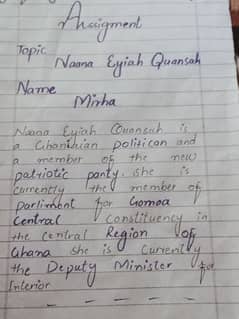 Assigment
Topic
Naana Eyiah Quansah
Name
Mirha
Naana Eyiah Quansah is
a Ghanaian politican and
a member of the new
patriotic party. she is
currently the member of
parliment for Gomoa
Central Constituency in
the Central Region of
Ghana she is Currently
the Deputy Minister for
Interior